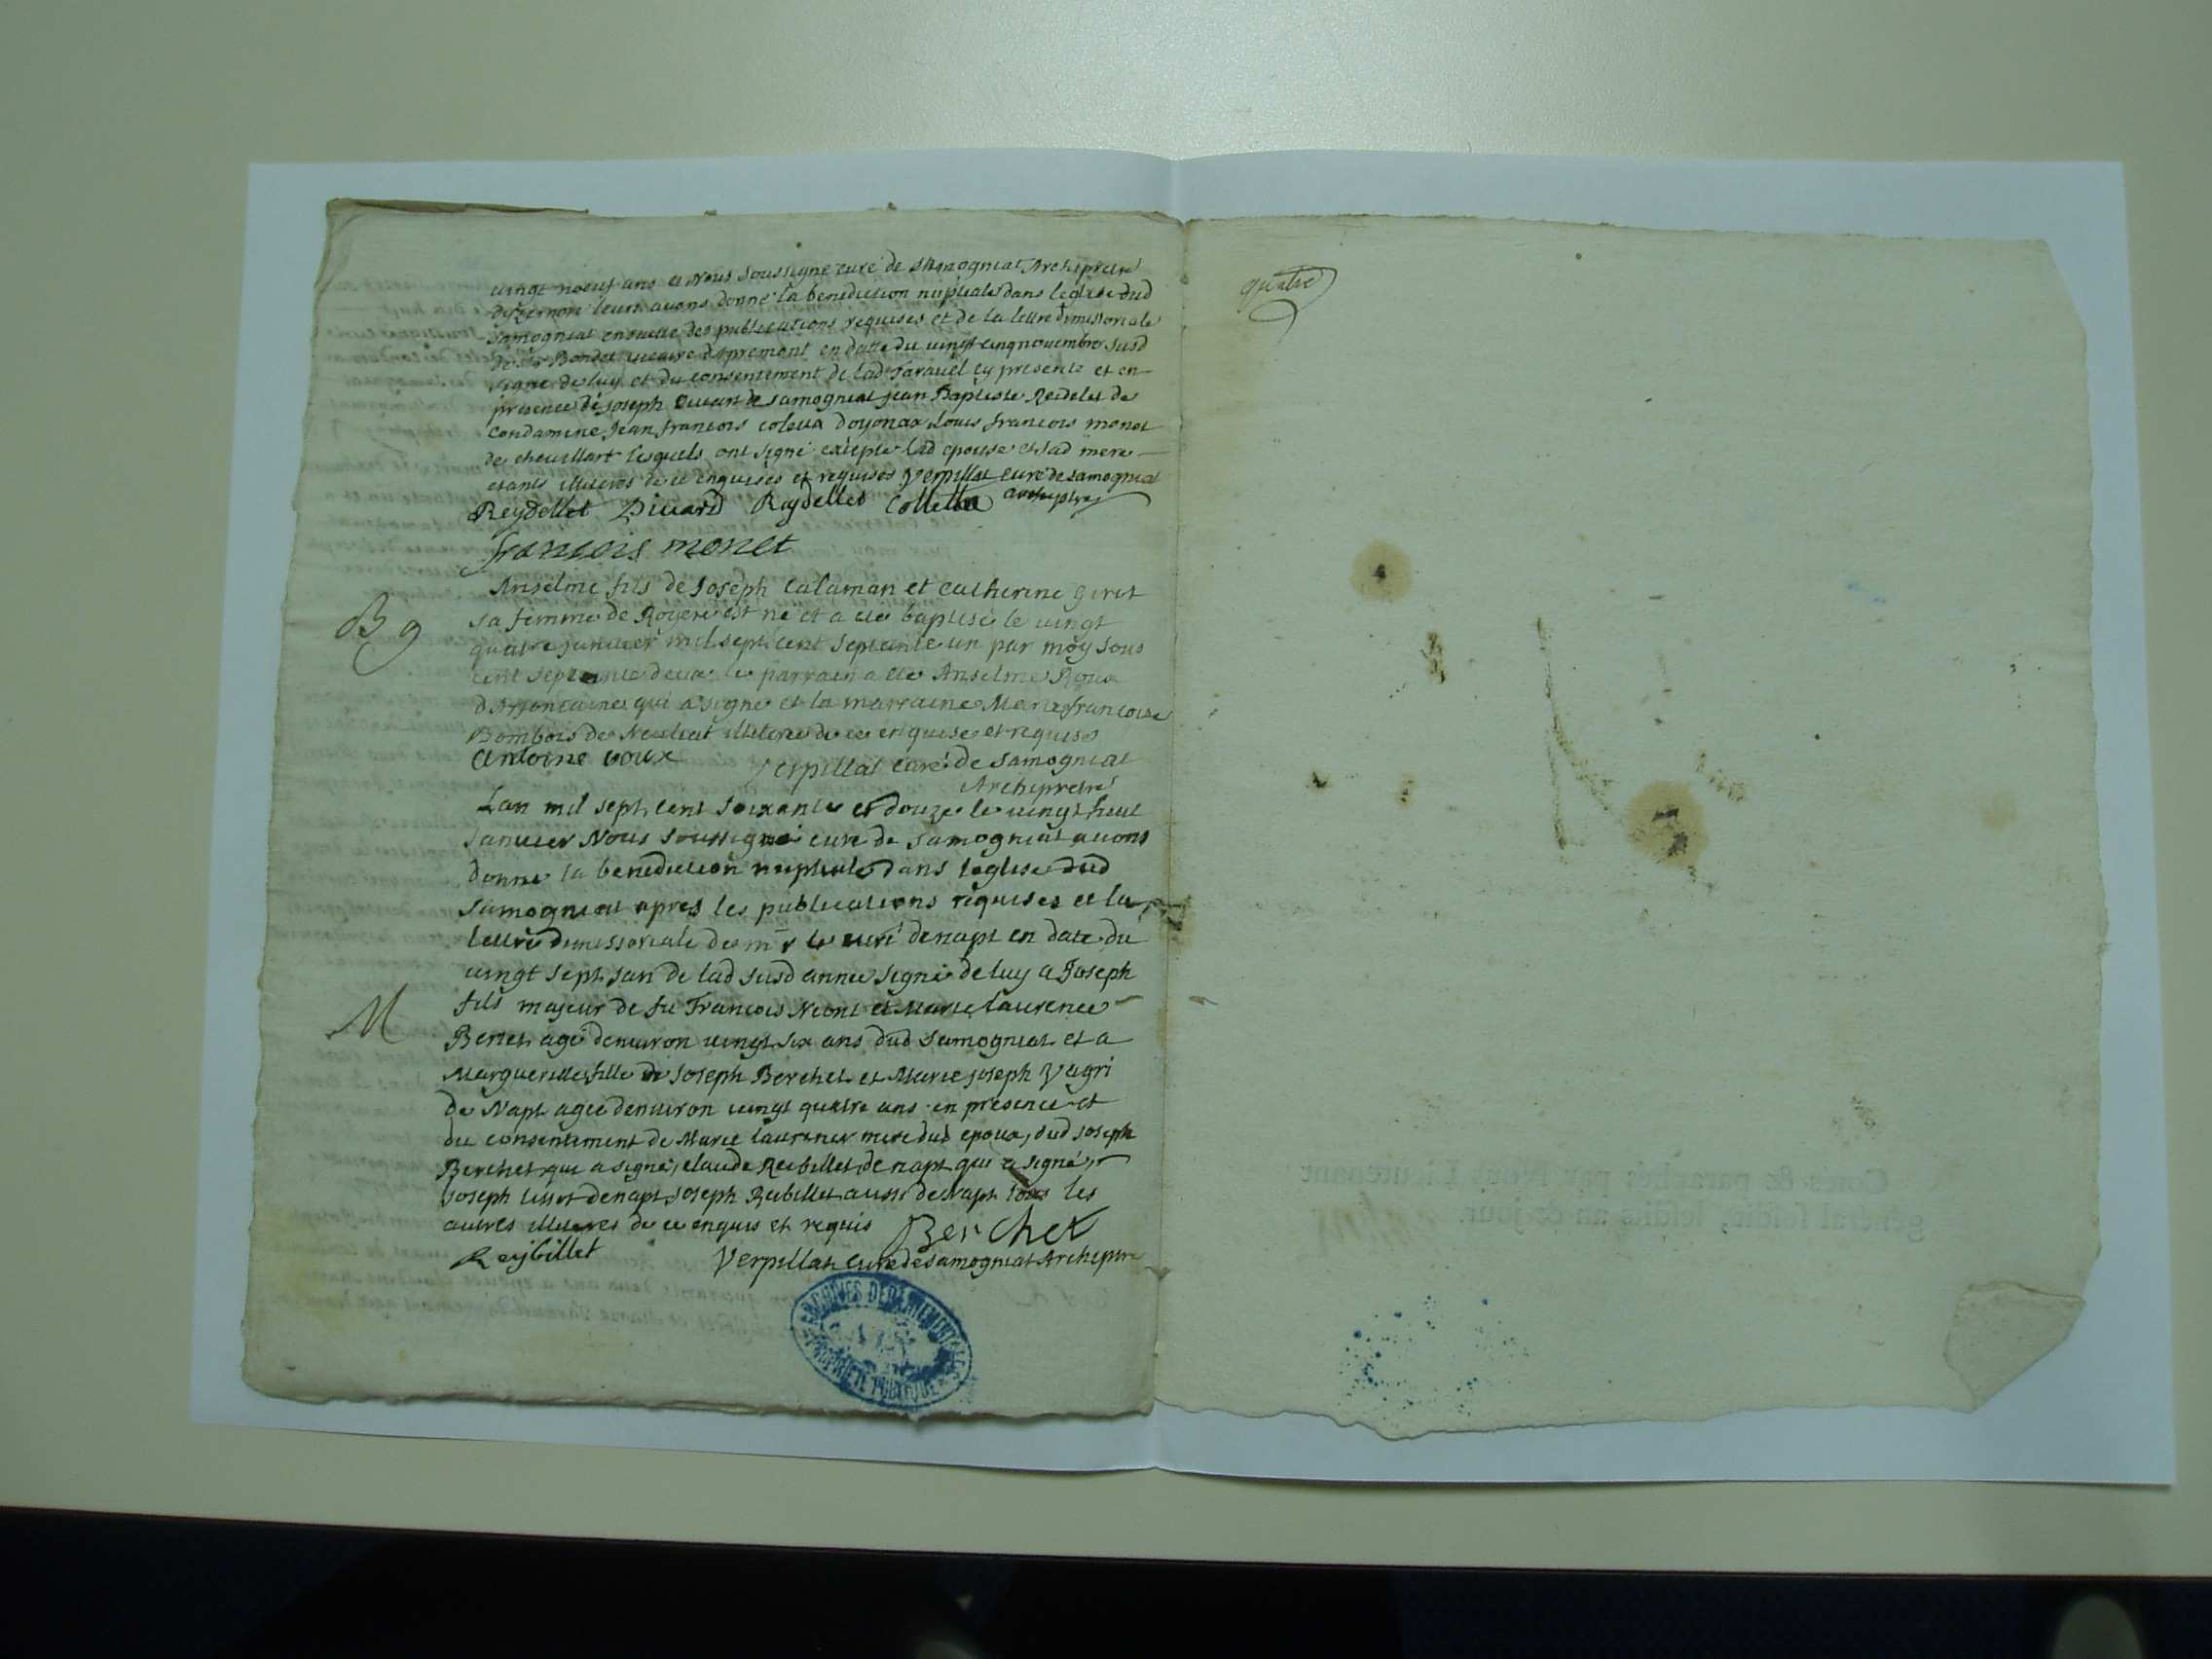 vingt neuf ans et Nous Soussigné curé de samogniat Archipretre
dizernore leurs avons donné la benediction nuptiale dans leglise dud
Samogniat ensuitte des publications requises et de la lettre dimissoriale
de Bondet vicaire dapremont en datte du vingt cinq novembre susd
signé de luy et du consentement de lad Taravel cy presente et en
presence de joseph Duvare de samogniat jean Baptiste Reidelet de
Condamine, Jean francois coletta doyonax Louis francois monet
de chevillart lesquels ont signé excepté lad epouse et sad mere
etants illiteres de ce enquises et requises Verpillat curé de samogniat
Reydellet Divard Reydellet Colletta archiptre
francois monet
Anselme fils de Joseph Calaman et Catherine Giret
B 9 sa femme de Royere est né et a été baptisé le vingt
quatre janvier mil sept cent septante un par moy sous
cent septante deux le parrain a eté Anselme Roux
qui a signé et la marraine Marie francoise
Bombois de illiteree de ce enquise et requise
antoine roux Verpillat curé de Samogniat
Archipretre
Lan mil sept cent soixante et douze le vingt huit
Janvier Nous Soussigné curé de samogniat avons
donné la benediction nuptiale dans leglise dud
Samogniat apres les publications requises et la
lettre dimissoriale de mr le curé de napt en date du
vingt sept jan de lad susd année signé de luy a Joseph
M fils majeur de fu Francois Niont et Marie laurence
Bertet agé denviron vingt six ans dud samogniat et a
Margueritte fille de Joseph Berchet et Marie joseph
de Napt agée denviron vingt quatre ans en presence et
du consentement de Marie laurence mere dud epoux, dud joseph
Berchet qui a signé, claude Reibillet de napt qui a signé,
joseph de napt joseph Reibillet aussi de Napt tous les
autres illiteres de ce enquis et requis Berchet
Reybillet Verpillat curé de samogniat Archiptre
ARCHIVES DEPARTEMENTALES
PROPRIETE PUBLIQUE
quatre
Cotés & paraphés par Nous Lieutenant
général susdit, lesdits an & jour.